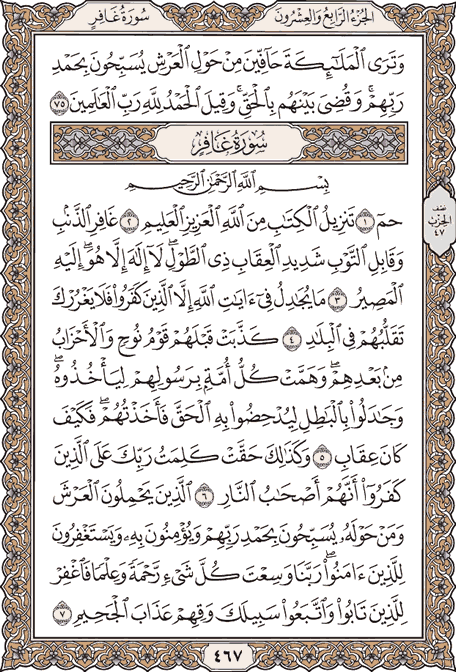 الجزء الرابع والعشرون سورة غافر
وَتَرَى ٱلْمَلَٰٓئِكَةَ حَآفِّينَ مِنْ حَوْلِ ٱلْعَرْشِ يُسَبِّحُونَ بِحَمْدِ
رَبِّهِمْ ۖ وَقُضِىَ بَيْنَهُم بِٱلْحَقِّ ۖ وَقِيلَ ٱلْحَمْدُ لِلَّهِ رَبِّ ٱلْعَٰلَمِينَ ٧٥
سُورَةُ غَافِرٍ
بِسْمِ ٱللَّهِ ٱلرَّحْمَٰنِ ٱلرَّحِيمِ
حمٓ ١ تَنزِيلُ ٱلْكِتَٰبِ مِنَ ٱللَّهِ ٱلْعَزِيزِ ٱلْعَلِيمِ ٢ غَافِرِ ٱلذَّنۢبِ
وَقَابِلِ ٱلتَّوْبِ شَدِيدِ ٱلْعِقَابِ ذِى ٱلطَّوْلِ ۖ لَآ إِلَٰهَ إِلَّا هُوَ ۖ إِلَيْهِ
ٱلْمَصِيرُ ٣ مَا يُجَٰدِلُ فِىٓ ءَايَٰتِ ٱللَّهِ إِلَّا ٱلَّذِينَ كَفَرُوا۟ فَلَا يَغْرُرْكَ
تَقَلُّبُهُمْ فِى ٱلْبِلَٰدِ ٤ كَذَّبَتْ قَبْلَهُمْ قَوْمُ نُوحٍ وَٱلْأَحْزَابُ
مِنۢ بَعْدِهِمْ ۖ وَهَمَّتْ كُلُّ أُمَّةٍۭ بِرَسُولِهِمْ لِيَأْخُذُوهُ ۖ
وَجَٰدَلُوا۟ بِٱلْبَٰطِلِ لِيُدْحِضُوا۟ بِهِ ٱلْحَقَّ فَأَخَذْتُهُمْ ۖ فَكَيْفَ
كَانَ عِقَابِ ٥ وَكَذَٰلِكَ حَقَّتْ كَلِمَتُ رَبِّكَ عَلَى ٱلَّذِينَ
كَفَرُوٓا۟ أَنَّهُمْ أَصْحَٰبُ ٱلنَّارِ ٦ ٱلَّذِينَ يَحْمِلُونَ ٱلْعَرْشَ
وَمَنْ حَوْلَهُۥ يُسَبِّحُونَ بِحَمْدِ رَبِّهِمْ وَيُؤْمِنُونَ بِهِۦ وَيَسْتَغْفِرُونَ
لِلَّذِينَ ءَامَنُوا۟ رَبَّنَا وَسِعْتَ كُلَّ شَىْءٍ رَّحْمَةً وَعِلْمًا فَٱغْفِرْ
لِلَّذِينَ تَابُوا۟ وَٱتَّبَعُوا۟ سَبِيلَكَ وَقِهِمْ عَذَابَ ٱلْجَحِيمِ ٧
نصف
الحزب
٤٧
٤٦٧